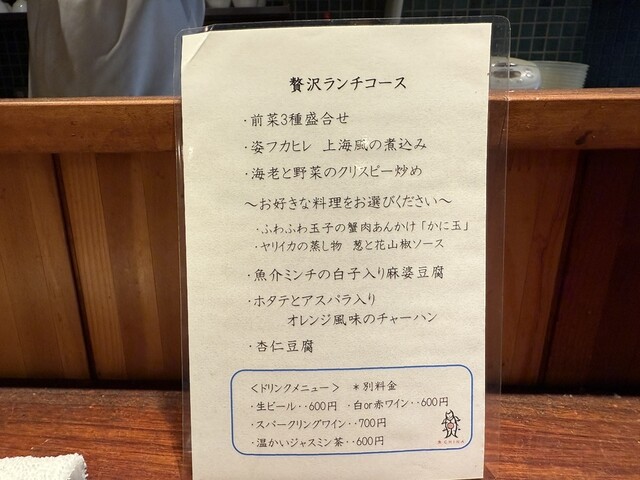 贅沢ランチコース
・前菜3種盛合せ
・姿フカヒレ 上海風の煮込み
・海老と野菜のクリスピー炒め
～お好きな料理をお選びください～
・ふわふわ玉子の蟹肉あんかけ「かに玉」
・ヤリイカの蒸し物 葱と花山椒ソース
・魚介ミンチの白子入り麻婆豆腐
・ホタテとアスパラ入り
オレンジ風味のチャーハン
・杏仁豆腐
＜ドリンクメニュー＞ ＊別料金
・生ビール‥600円 ・白or赤ワイン‥600円
・スパークリングワイン‥700円
・温かいジャスミン茶‥600円